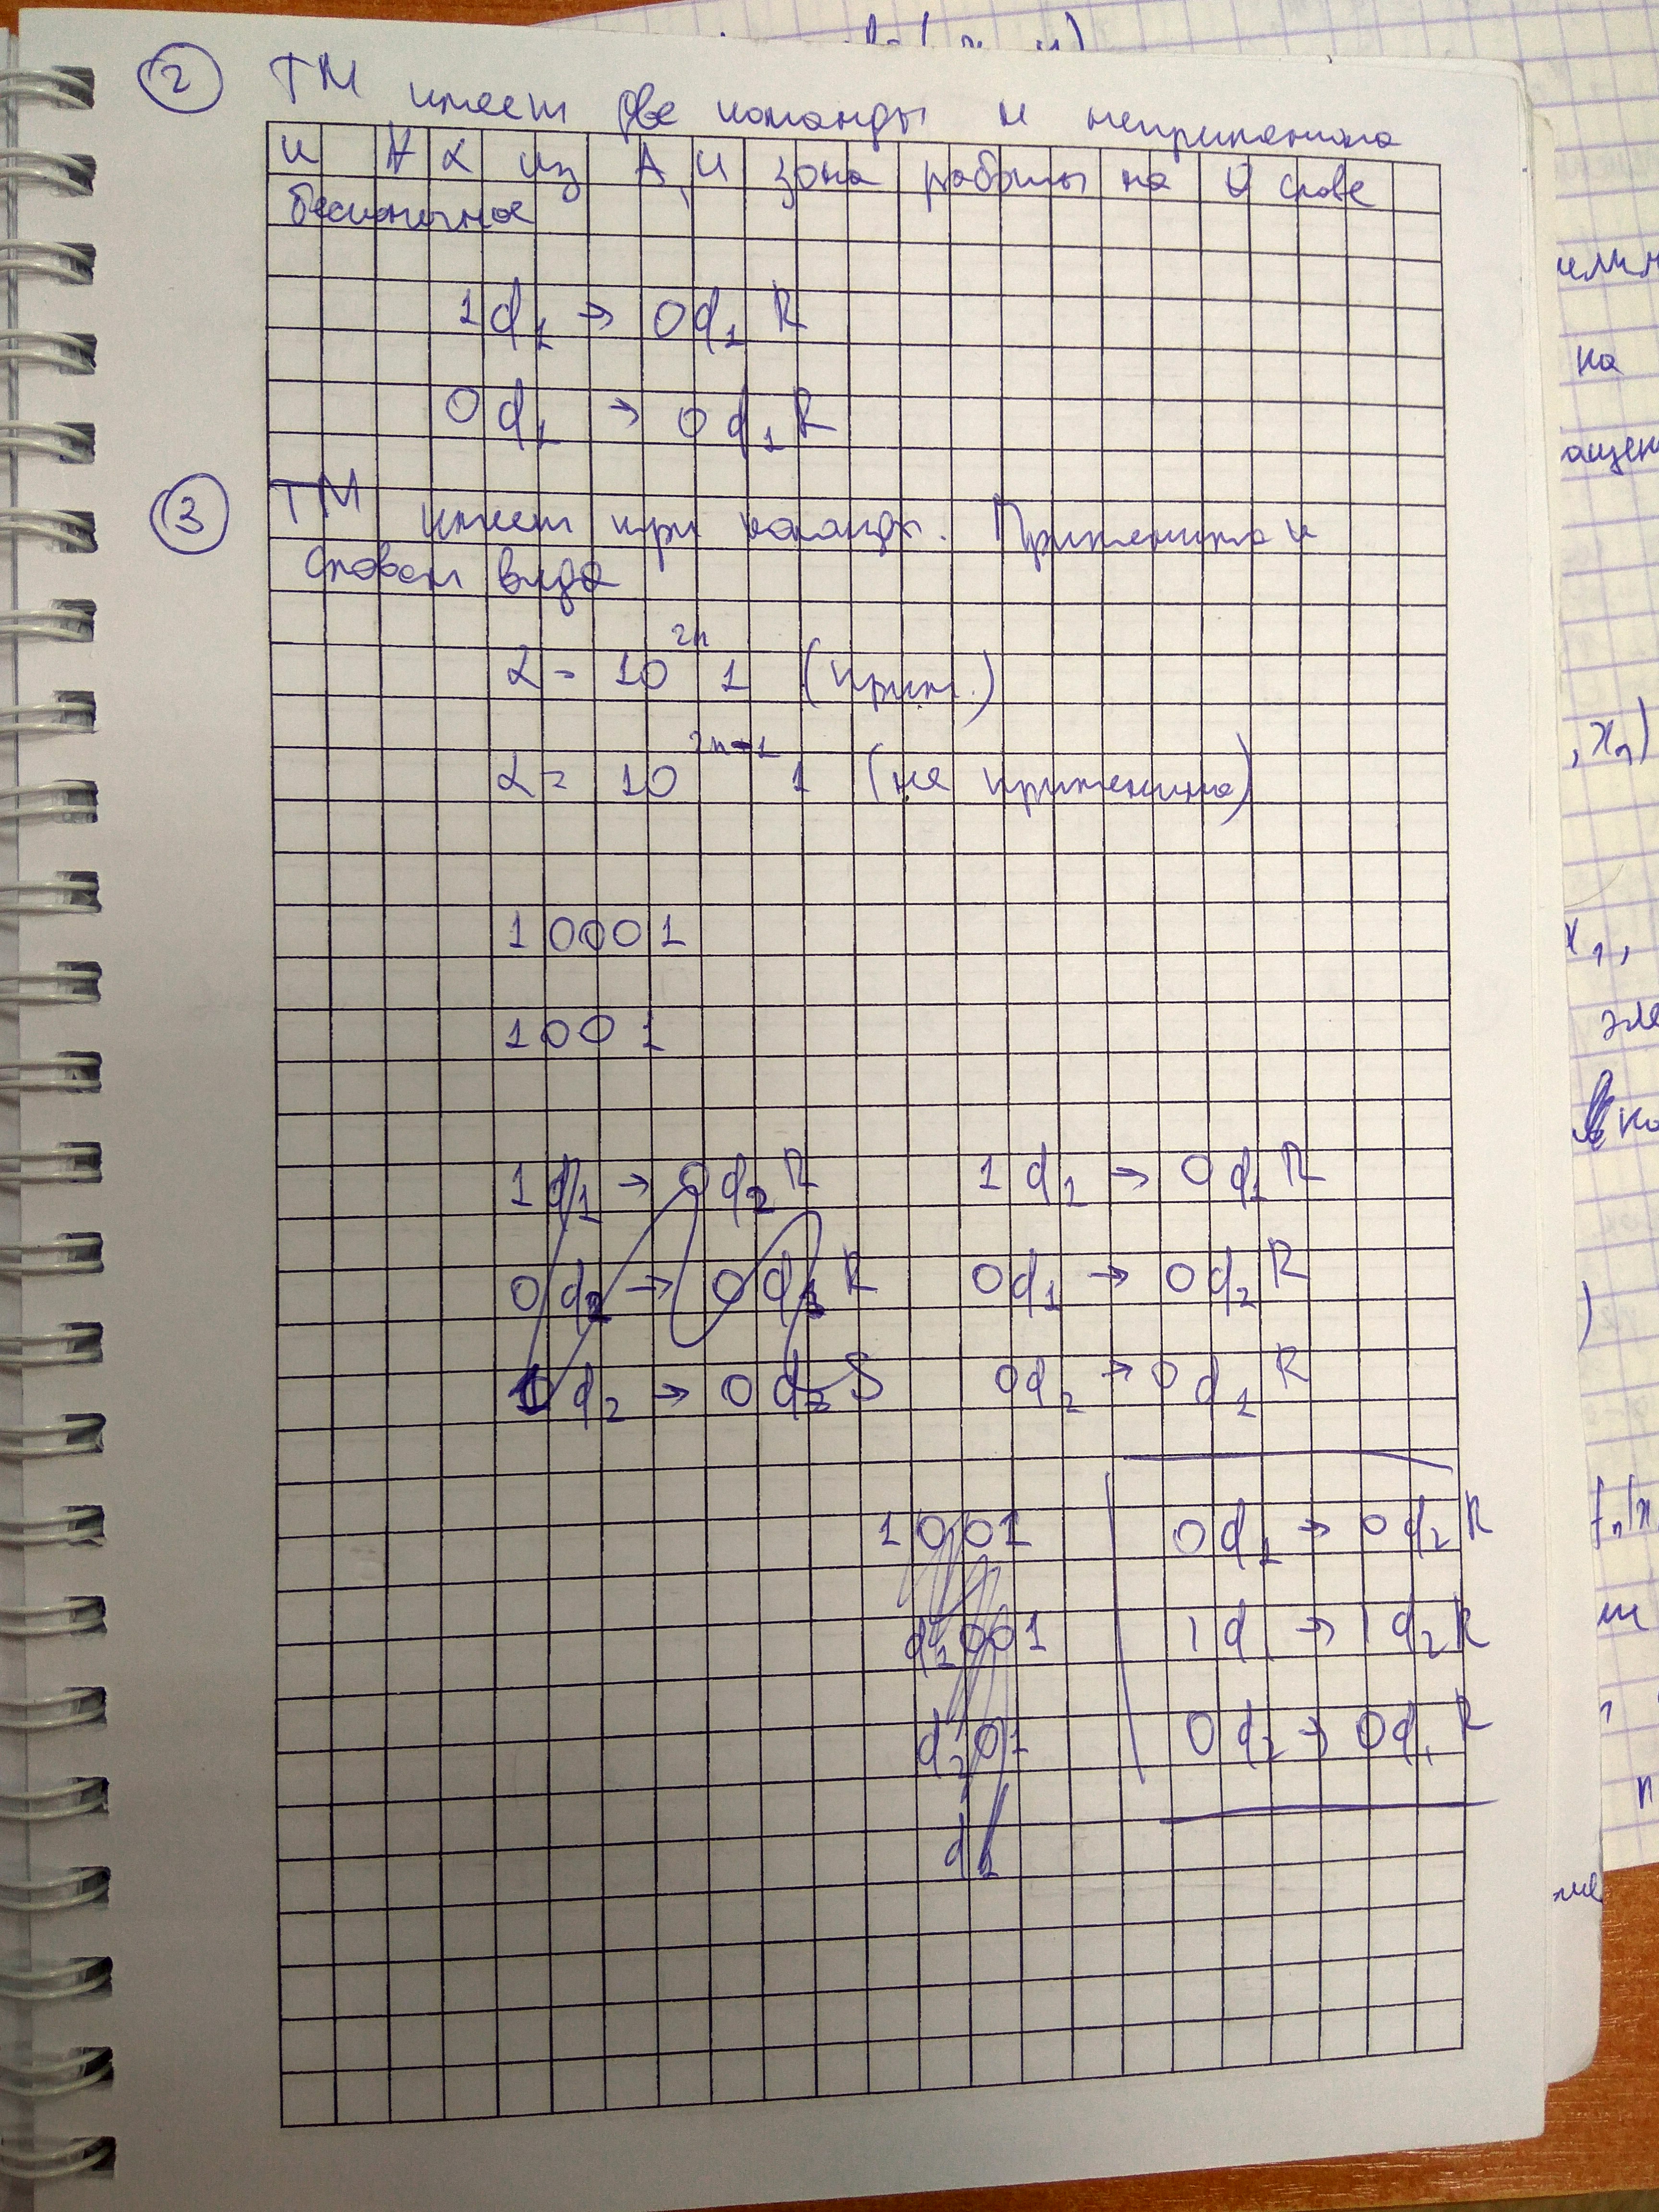 ② ТМ имеет две команды и неприменима
к ∀ α из A, и зона работы на 0 слове
бесконечное
1q₁ → 0q₁ R
0q₁ → 0q₁ R
③ ТМ имеет три команды. Применима к
словам вида
α = 10²ⁿ1 (прим.)
α = 10²ⁿ⁺¹1 (не применима)
10001
1001
1q₁ → 0q₂R 1q₁ → 0q₁R
0q₂ → 0q₁R 0q₁ → 0q₂R
0q₂ → 0q₂S 0q₂ → 0q₁R
1001 0q₁ → 0q₂R
q₂001 1q → 1q₂R
q₂01 0q₂ → 0q₁R
q₂